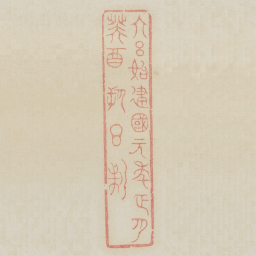 大呂始建國元年正月
癸酉朔日制